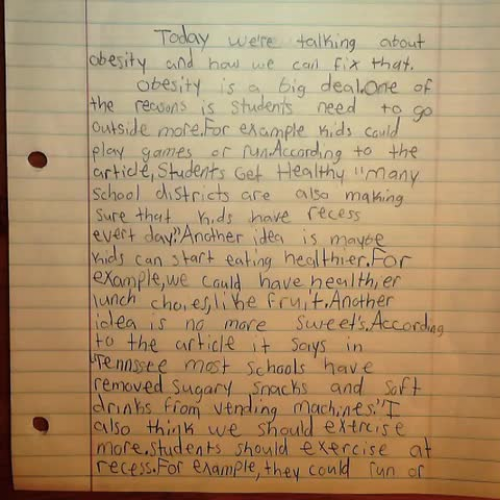 Today we're talking about
obesity and how we can fix that.
Obesity is a big deal.One of
the reasons is students need to go
outside more.For example kids could
play games or run.According to the
article,Students Get Healthy "many
school districts are also making
sure that kids have recess
evert day."Another idea is maybe
kids can start eating healthier.For
example,we could have healthier
lunch choies,like fruit.Another
idea is no more sweet's.According
to the article it says in
"Tennssee most schools have
removed sugary snacks and soft
drinks from vending machines."I
also think we should extrcise
more.Students should exercise at
recess.For example,they could run or